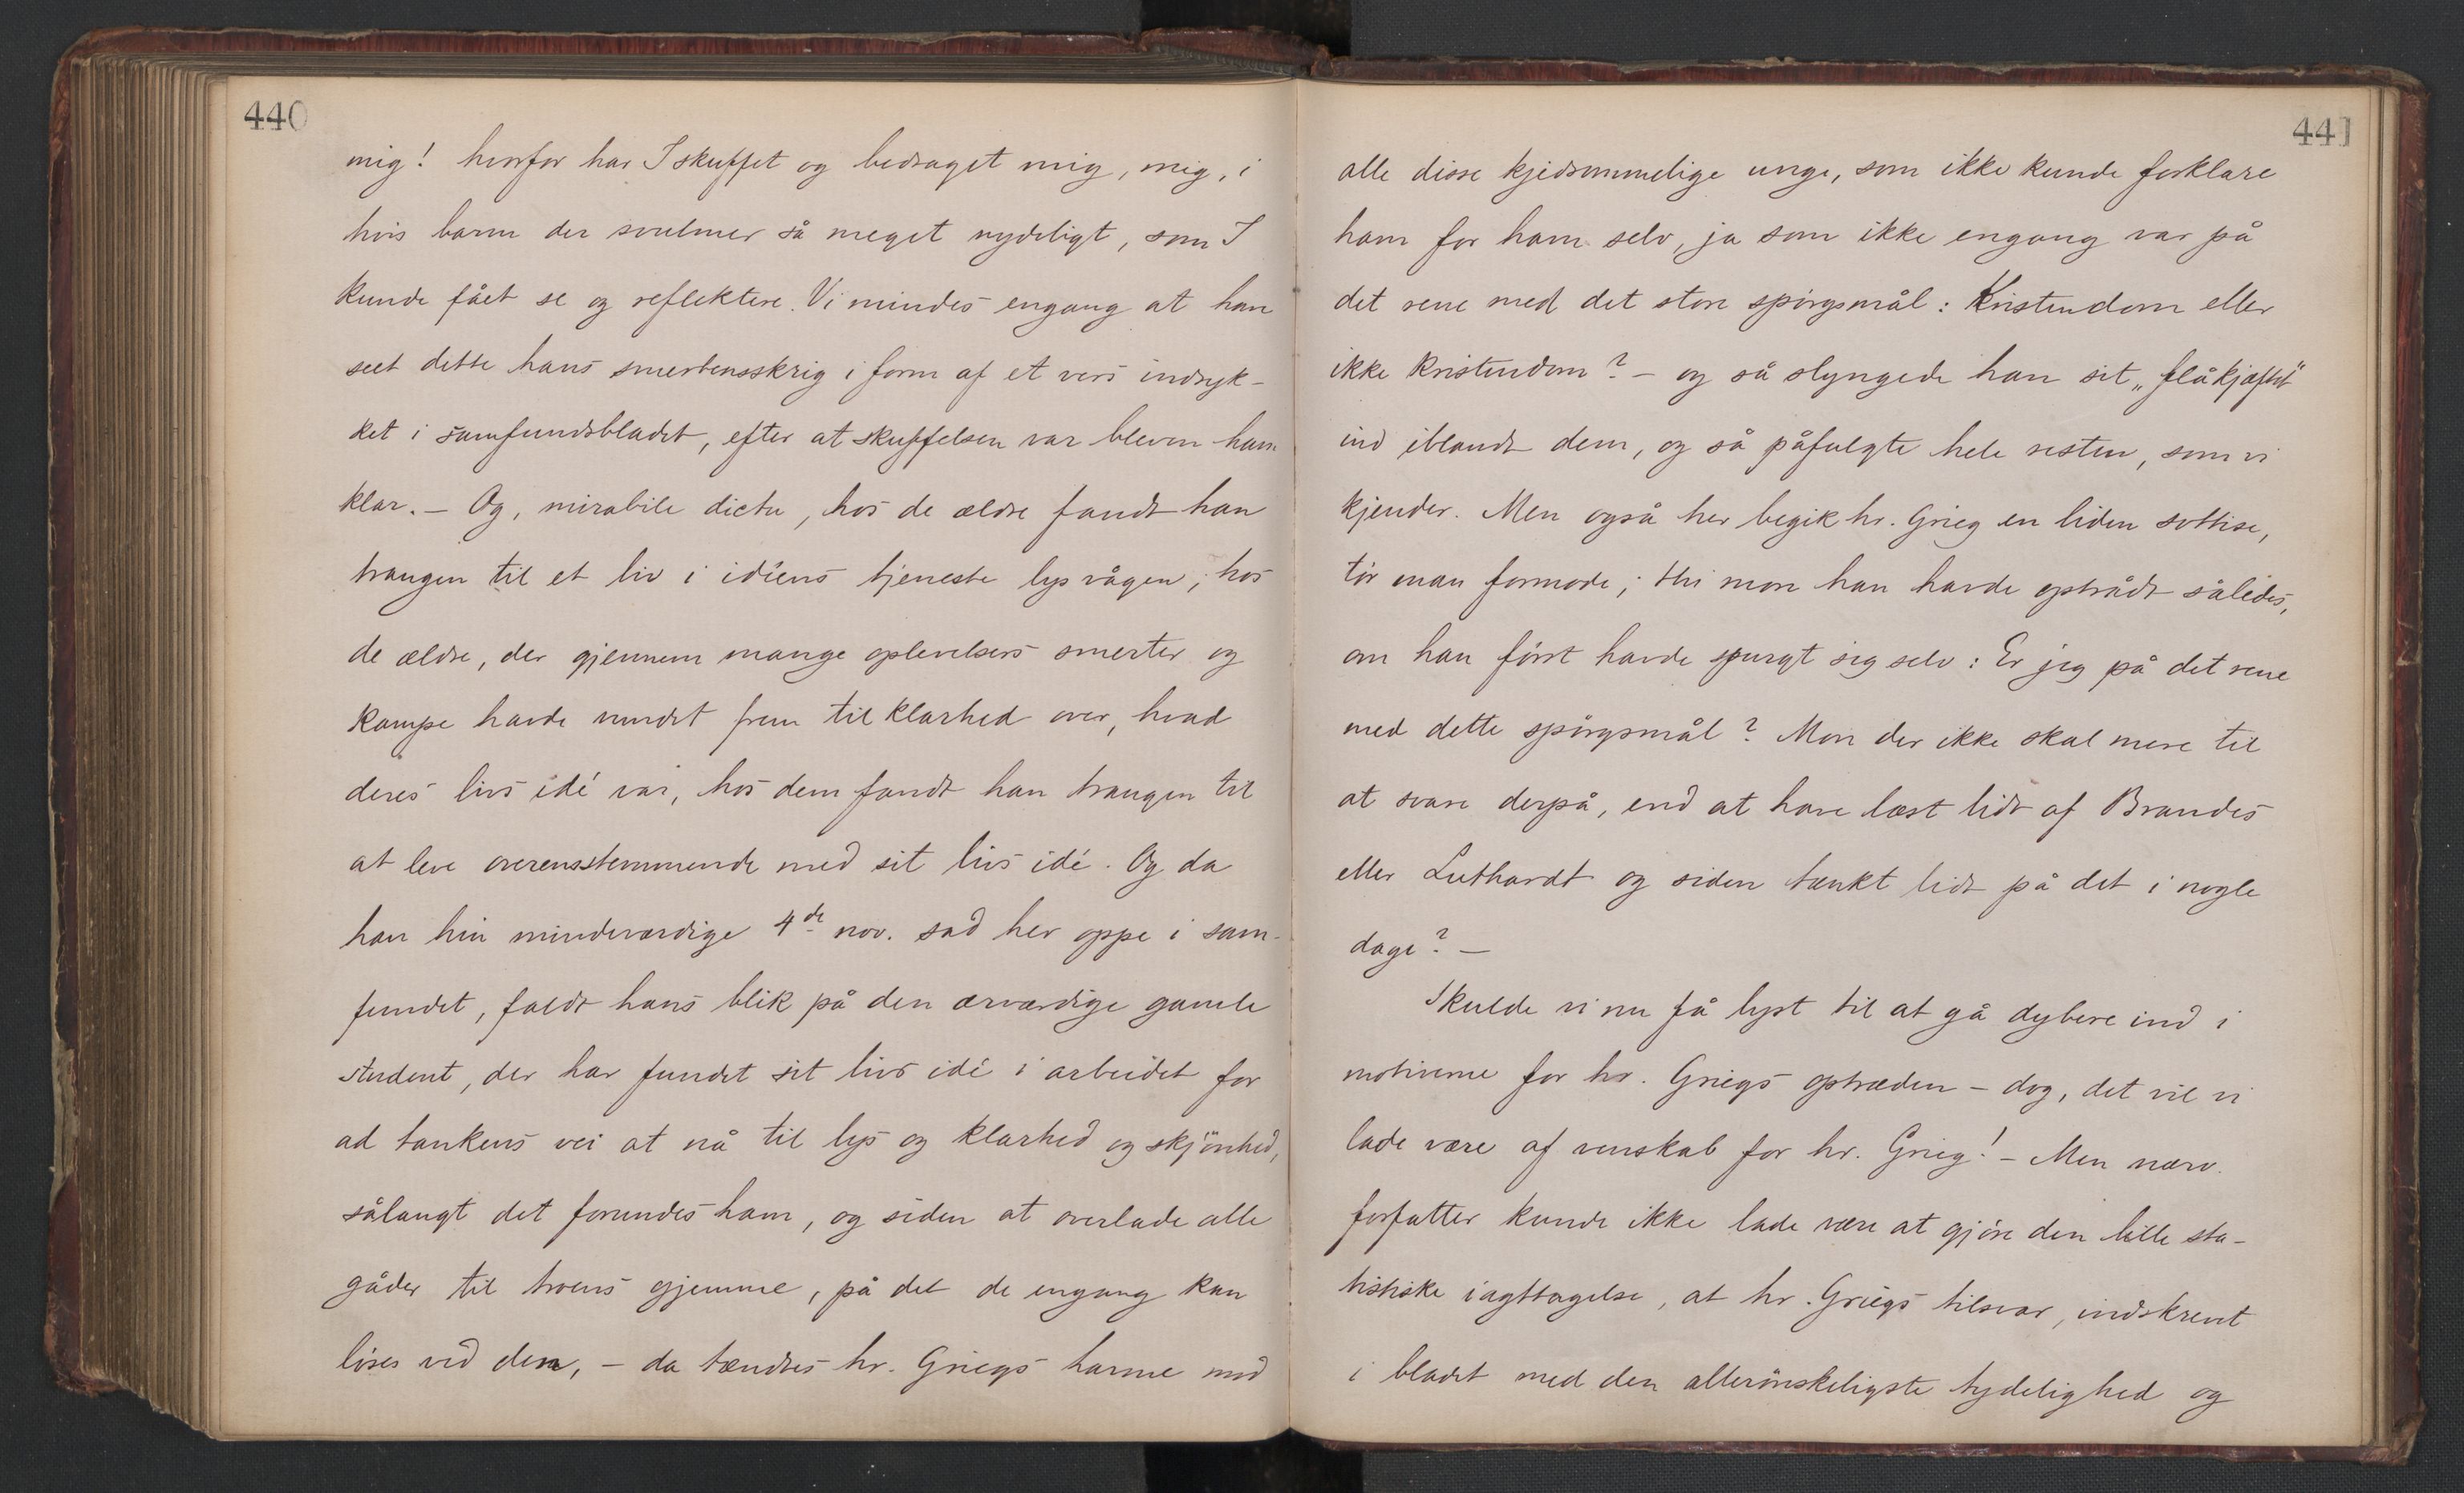 440
mig! hvorfor har I skuffet og bedraget mig, mig, i
hvis barm der svulmer så meget nydeligt, som I
kunde fået se og reflektere. Vi mindes engang at have
seet dette hans smertensskrig i form af et vers indryk-
ket i samfundsbladet, efter at skuffelsen var bleven ham
klar. — Og, mirabile dictu, hos de ældre fandt han
trangen til et liv i idéens tjeneste lys vågen; hos
de ældre, der gjennem mange oplevelsers smerter og
kampe havde vundet frem til klarhed over, hvad
deres livs idé var, hos dem fandt han trangen til
at leve overensstemmende med sit livs idé. Og da
han hin mindeværdige 4de nov. sad her oppe i sam-
fundet, faldt hans blik på den ærværdige gamle
student, der har fundet sit livs idé i arbeidet for
ad tankens vei at nå til lys og klarhed og skjönhed,
sålangt det forundes ham, og siden at overlade alle
gåder til troens gjemme, på det de engang kan
löses ved den, — da tændtes hr. Griegs harme mod
441
alle disse kjedsommelige unge, som ikke kunde forklare
ham for ham selv, ja som ikke engang var på
det rene med det store spörgsmål: Kristendom eller
ikke kristendom? — og så slyngede han sit „flåkjæftet"
ind iblandt dem, og så påfulgte hele resten, som vi
kjender. Men også her begik hr. Grieg en liden sottise,
tör man formode; thi mon han havde optrådt således,
om han först havde spurgt sig selv: Er jeg på det rene
med dette spörgsmål? Mon der ikke skal mere til
at svare derpå, end at have læst lidt af Brandes
eller Luthardt og siden tænkt lidt på det i nogle
dage? —
Skulde vi nu få lyst til at gå dybere ind i
motiverne for hr. Griegs optræden — dog, det vil vi
lade være af venskab for hr. Grieg! — Men nærv.
forfatter kunde ikke lade være at gjöre den lille sta-
tistiske iagttagelse, at hr. Griegs tilsvar, indskrevet
i bladet med den allerönskeligste tydelighed og